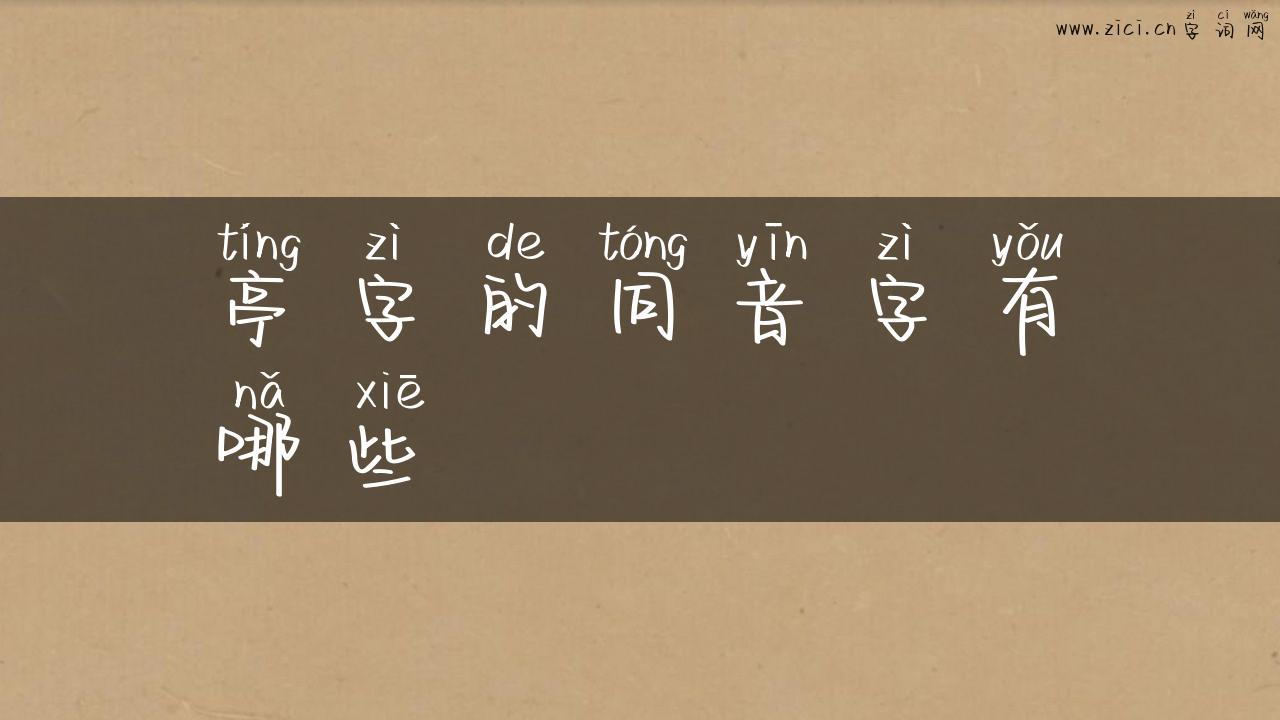 zì cí wǎng
www.zici.cn 字词网
tíng zì de tóng yīn zì yǒu
亭字的同音字有
nǎ xiē
哪些